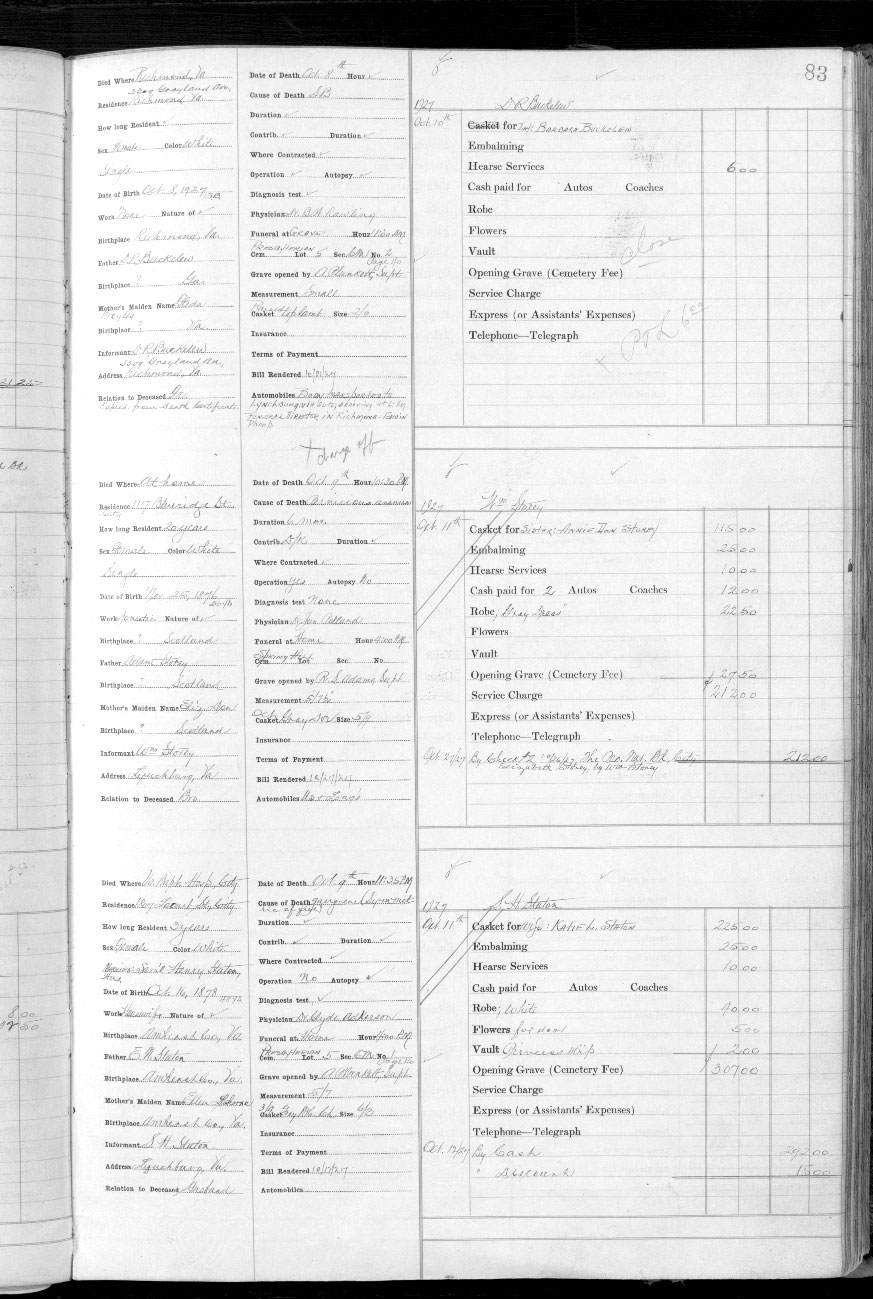 83
Died Where Richmond, Va
3209 Grayland Ave,
Residence Richmond Va.
How long Resident
Sex Female Color White
Single
Date of Birth Oct. 8, 1927
Work None Nature of
Birthplace Richmond, Va
Father D R Buckelew
Birthplace ? Ga.
Mother's Maiden Name
Birthplace ? Va
Informant D R Buckelew
3209 Grayland Ave,
Address Richmond, Va.
Relation to Deceased
Copied from Death Certificate
Date of Death Oct. 8th Hour
Cause of Death S.B
Duration
Contrib. Duration
Where Contracted
Operation Autopsy
Diagnosis test
Physician
Funeral at Grave Hour
Presbyterian
Cem. Lot 5 Sec. No. 2
Page 110
Grave opened by A Plunkett, Supt
Measurement Small
Casket Size 2/6
Insurance
Terms of Payment
Bill Rendered 10/31/27
Automobiles Body transported to
Lynchburg, Va
Funeral Director in Richmond
+ charge off
1927 D R Buckelew
Oct. 10th Casket for Inf: Barbara Buckelew
Embalming
Hearse Services 6 00
Cash paid for Autos Coaches
Robe
Flowers
Vault close
Opening Grave (Cemetery Fee)
Service Charge
Express (or Assistants' Expenses)
Telephone—Telegraph
+ P & L 6 00
Died Where At home
Residence 1117 St.
City
How long Resident 20 years
Sex Female Color White
Single
Date of Birth Nov. 25, 1876
Work Domestic Nature of
Birthplace ? Scotland
Father Adam Storey
Birthplace ? Scotland
Mother's Maiden Name Eliz. Don
Birthplace ? Scotland
Informant Wm Storey
Address Lynchburg, Va
Relation to Deceased Bro.
Date of Death Oct. 9th Hour 10:30 P.M.
Cause of Death Pernicious anaemia
Duration 6 mos.
Contrib. D/K Duration
Where Contracted
Operation Yes Autopsy No
Diagnosis test None
Physician
Funeral at Home Hour 4:00 P.M.
Spring Hill
Cem. Lot Sec. No.
Grave opened by R. S. Adams Supt
Measurement
Casket Size 5/9
Insurance
Terms of Payment
Bill Rendered 10/27/27
Automobiles
1927 Wm Storey
Oct. 11th Casket for Sister: Annie Don Storey 115 00
Embalming 25 00
Hearse Services 10 00
Cash paid for 2 Autos Coaches 12 00
Robe, "Gray Dress" 22 50
Flowers
Vault
Opening Grave (Cemetery Fee) 27 50
Service Charge 212 00
Express (or Assistants' Expenses)
Telephone—Telegraph
Oct 27/27 By Check #2 10/26/27, The Peo. Nat. Bk City 212 00
Elizabeth Storey, by Wm Storey
Died Where Va. Bapt. Hosp, City
Residence Locust St, City
How long Resident 3 years
Sex Female Color White
Married: Sam'l Henry Staton,
Date of Birth Oct. 16, 1878
Work Housewife Nature of
Birthplace Amherst Co., Va.
Father Staton
Birthplace Amherst Co, Va.
Mother's Maiden Name Ellen
Birthplace Amherst Co, Va.
Informant S. H. Staton
Address Lynchburg, Va.
Relation to Deceased Husband
Date of Death Oct. 9th Hour 11:35 P.M.
Cause of Death Gangrene
Duration
Contrib. Duration
Where Contracted
Operation No Autopsy
Diagnosis test
Physician Dr. Clyde Adkerson
Funeral at Home Hour
Presbyterian
Cem. Lot 5 Sec. No.
Grave opened by A Plunkett Supt
Measurement 5/7
Casket Size 6/3
Insurance
Terms of Payment
Bill Rendered
Automobiles
1927 S. H. Staton
Oct. 11th Casket for Wife: Katie L. Staton 225 00
Embalming 25 00
Hearse Services 10 00
Cash paid for Autos Coaches
Robe, White 40 00
Flowers for door 5 00
Vault Princess Slip 2 00
Opening Grave (Cemetery Fee) 307 00
Service Charge
Express (or Assistants' Expenses)
Telephone—Telegraph
Oct. 12/27 By Cash 292 00
" Discount 15 00